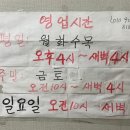 영업시간
평일 월화수목
오후4시~새벽4시
금토
오전10시~새벽4시
일요일 오전10시~새벽